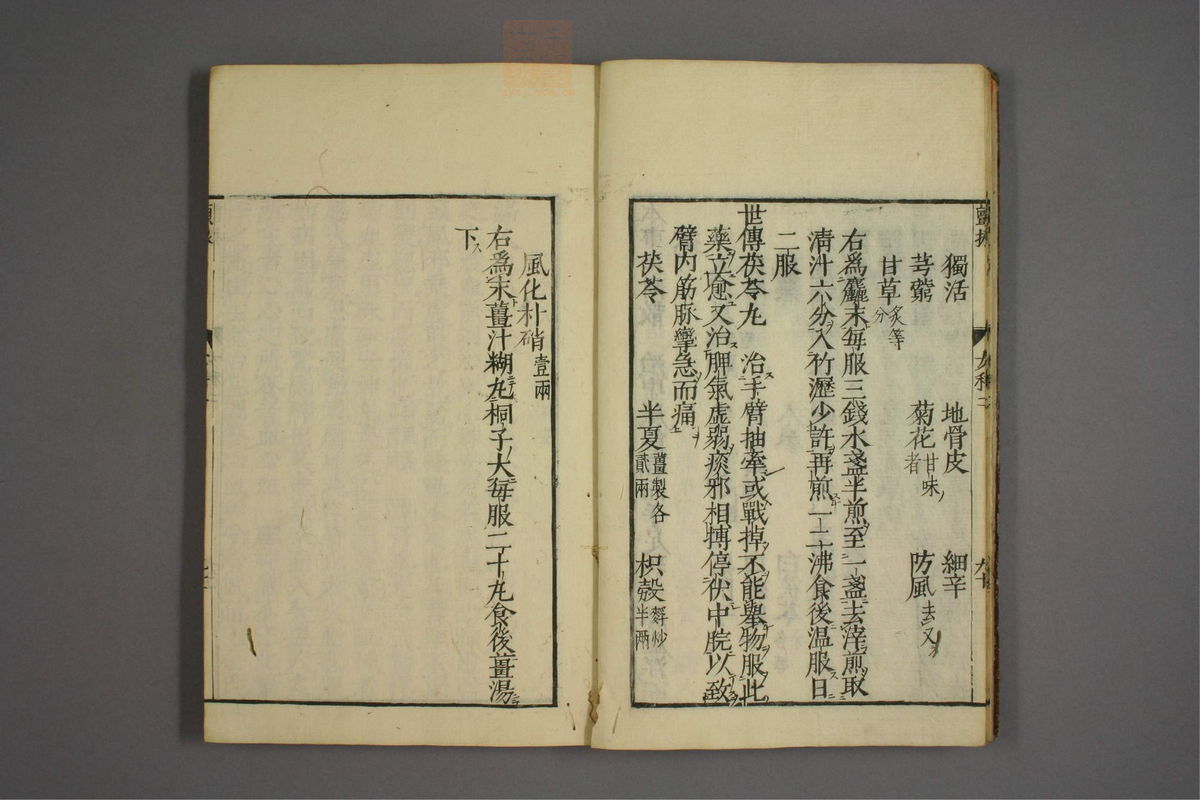 獨活　地骨皮　細辛
芎藭　菊花甘味者　防風去叉
甘草炙等分
右爲麤末每服三錢水盞半煎至一盞去滓煎取
淸汁六分入竹瀝少許再煎一二沸食後温服日
二服
世傳茯苓丸　治手臂抽牽或戰掉不能舉物服此
藥立愈又治脾氣虛弱痰邪相搏停伏中脘以致
臂内筋脉攣急而痛
茯苓　半夏薑製各貳兩　枳殼麩炒半兩
風化朴硝壹兩
右爲末薑汁糊丸桐子大每服二十丸食後薑湯
下
女科二